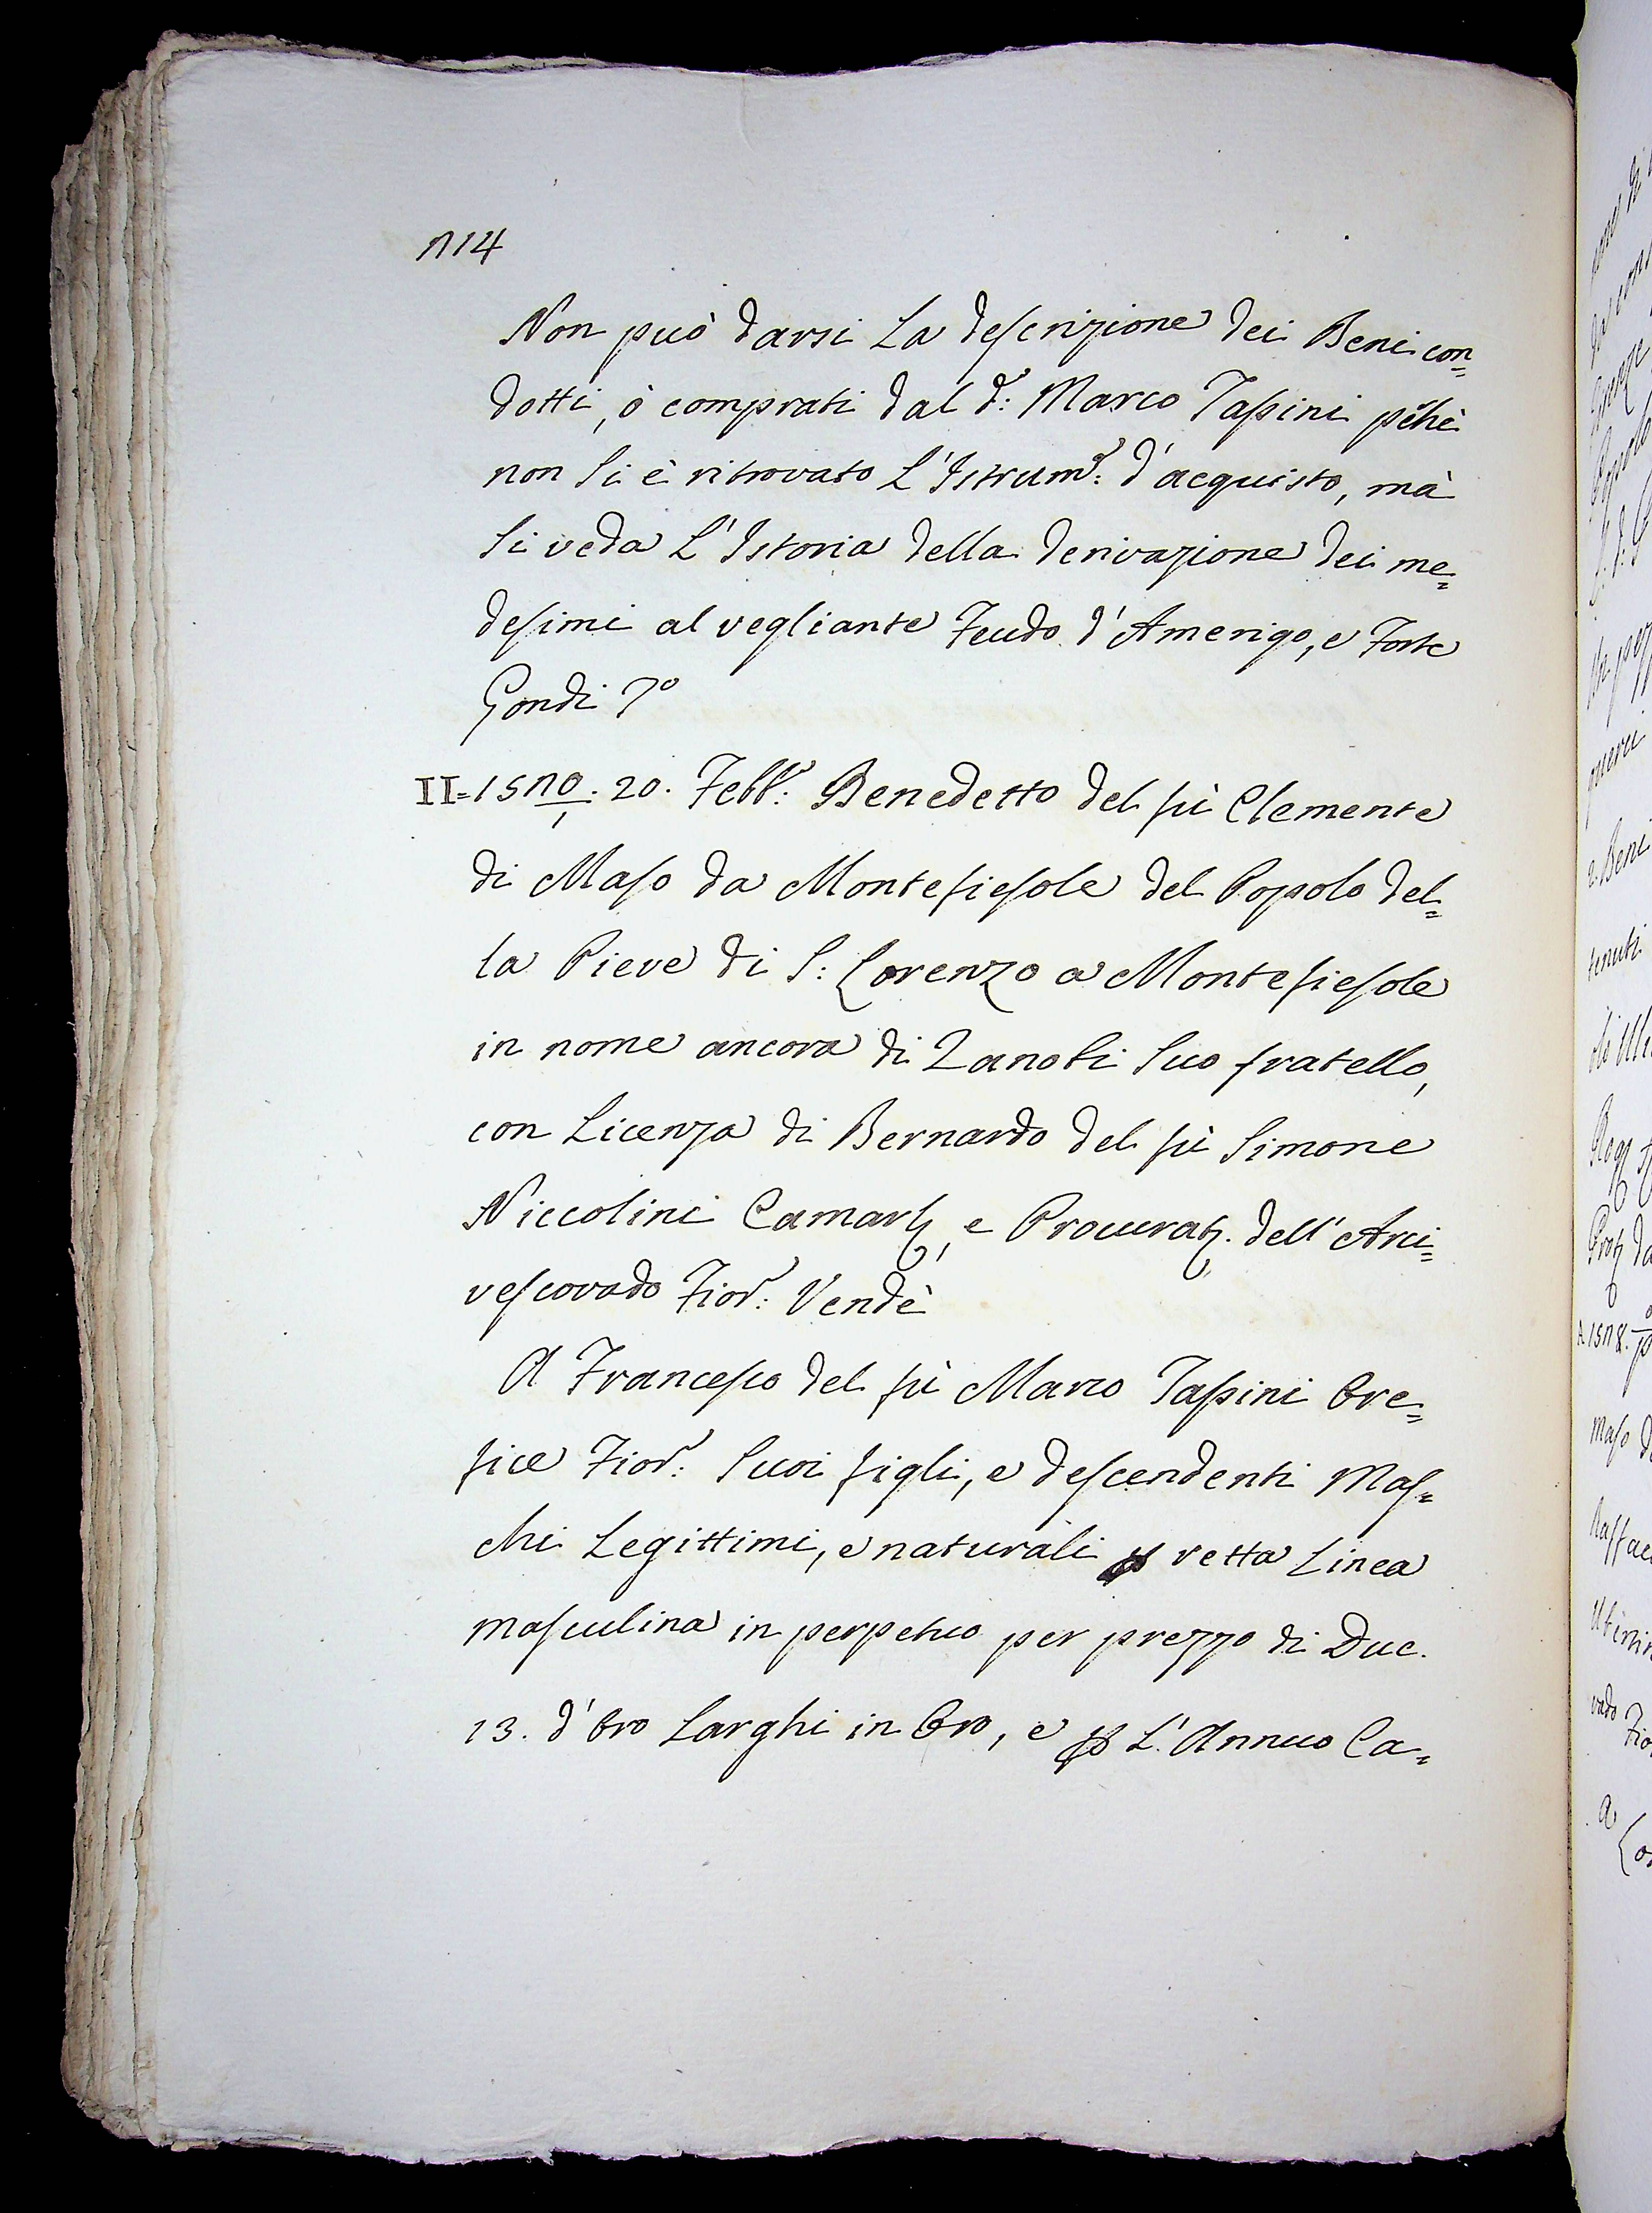 714
Non può darsi La descrizione dei Beni con=
dotti, ò comprati dal d.º: Marco Tassini pchè
non Si è ritrovato L'Istrum.º: d'acquisto, mà
Si veda L'Istoria della derivazione dei me=
desimi al vegliante Feudo d'Amerigo, e Forte
Gondi 7º
II=1570/1. 20. Febb.º: Benedetto del fù Clemente
di Maso da Montefiesole del Popolo del=
la Pieve di S: Lorenzo a Montefiesole
in nome ancora di Zanobi Suo fratello,
con Licenza di Bernardo del fù Simone
Niccolini Camarl., e Procurat. dell'Arci=
vescovado Fior.º: Vendè
A Francesco del fù Marco Tassini Ore=
fice Fior.º: Suoi figli, e descendenti Mas=
chi Legittimi, e naturali p retta Linea
masculina in perpetuo per prezzo di Duc.
13. d'Oro Larghi in Oro, e p L'Annuo Ca=